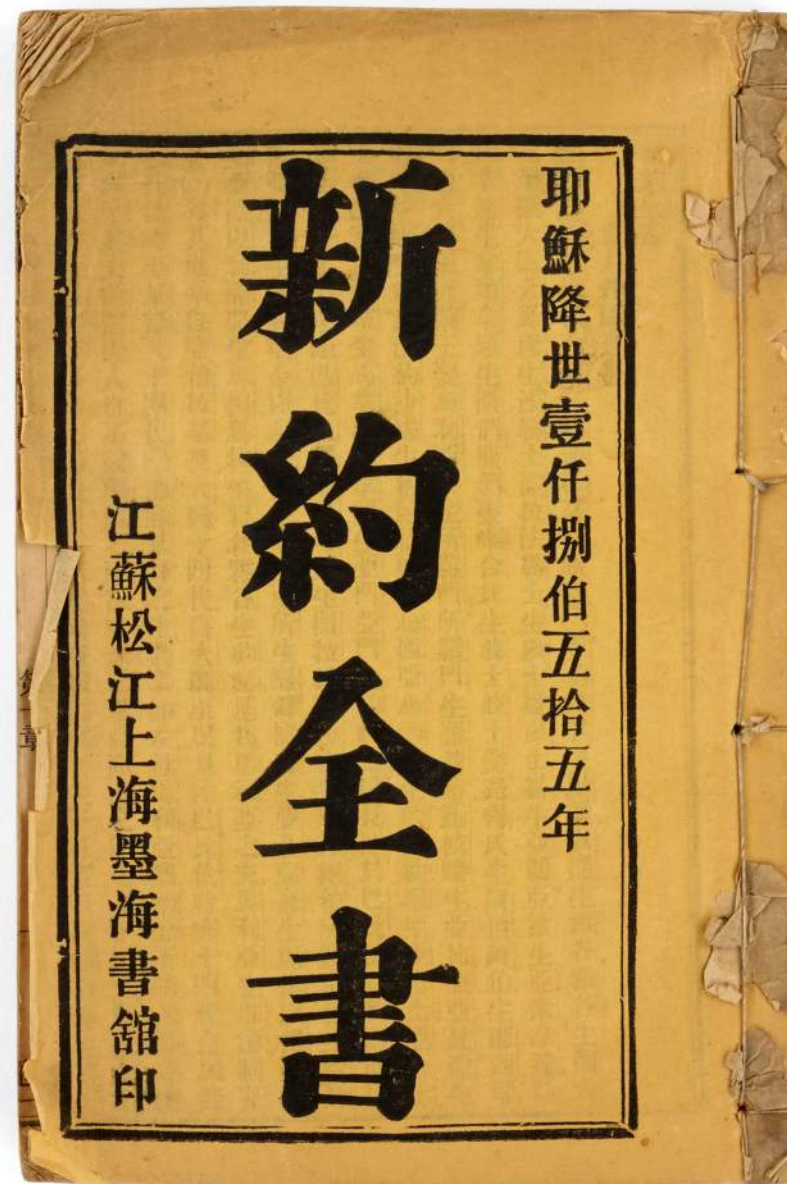 耶穌降世壹仟捌伯五拾五年
新約全書
江蘇松江上海墨海書舘印
第一章